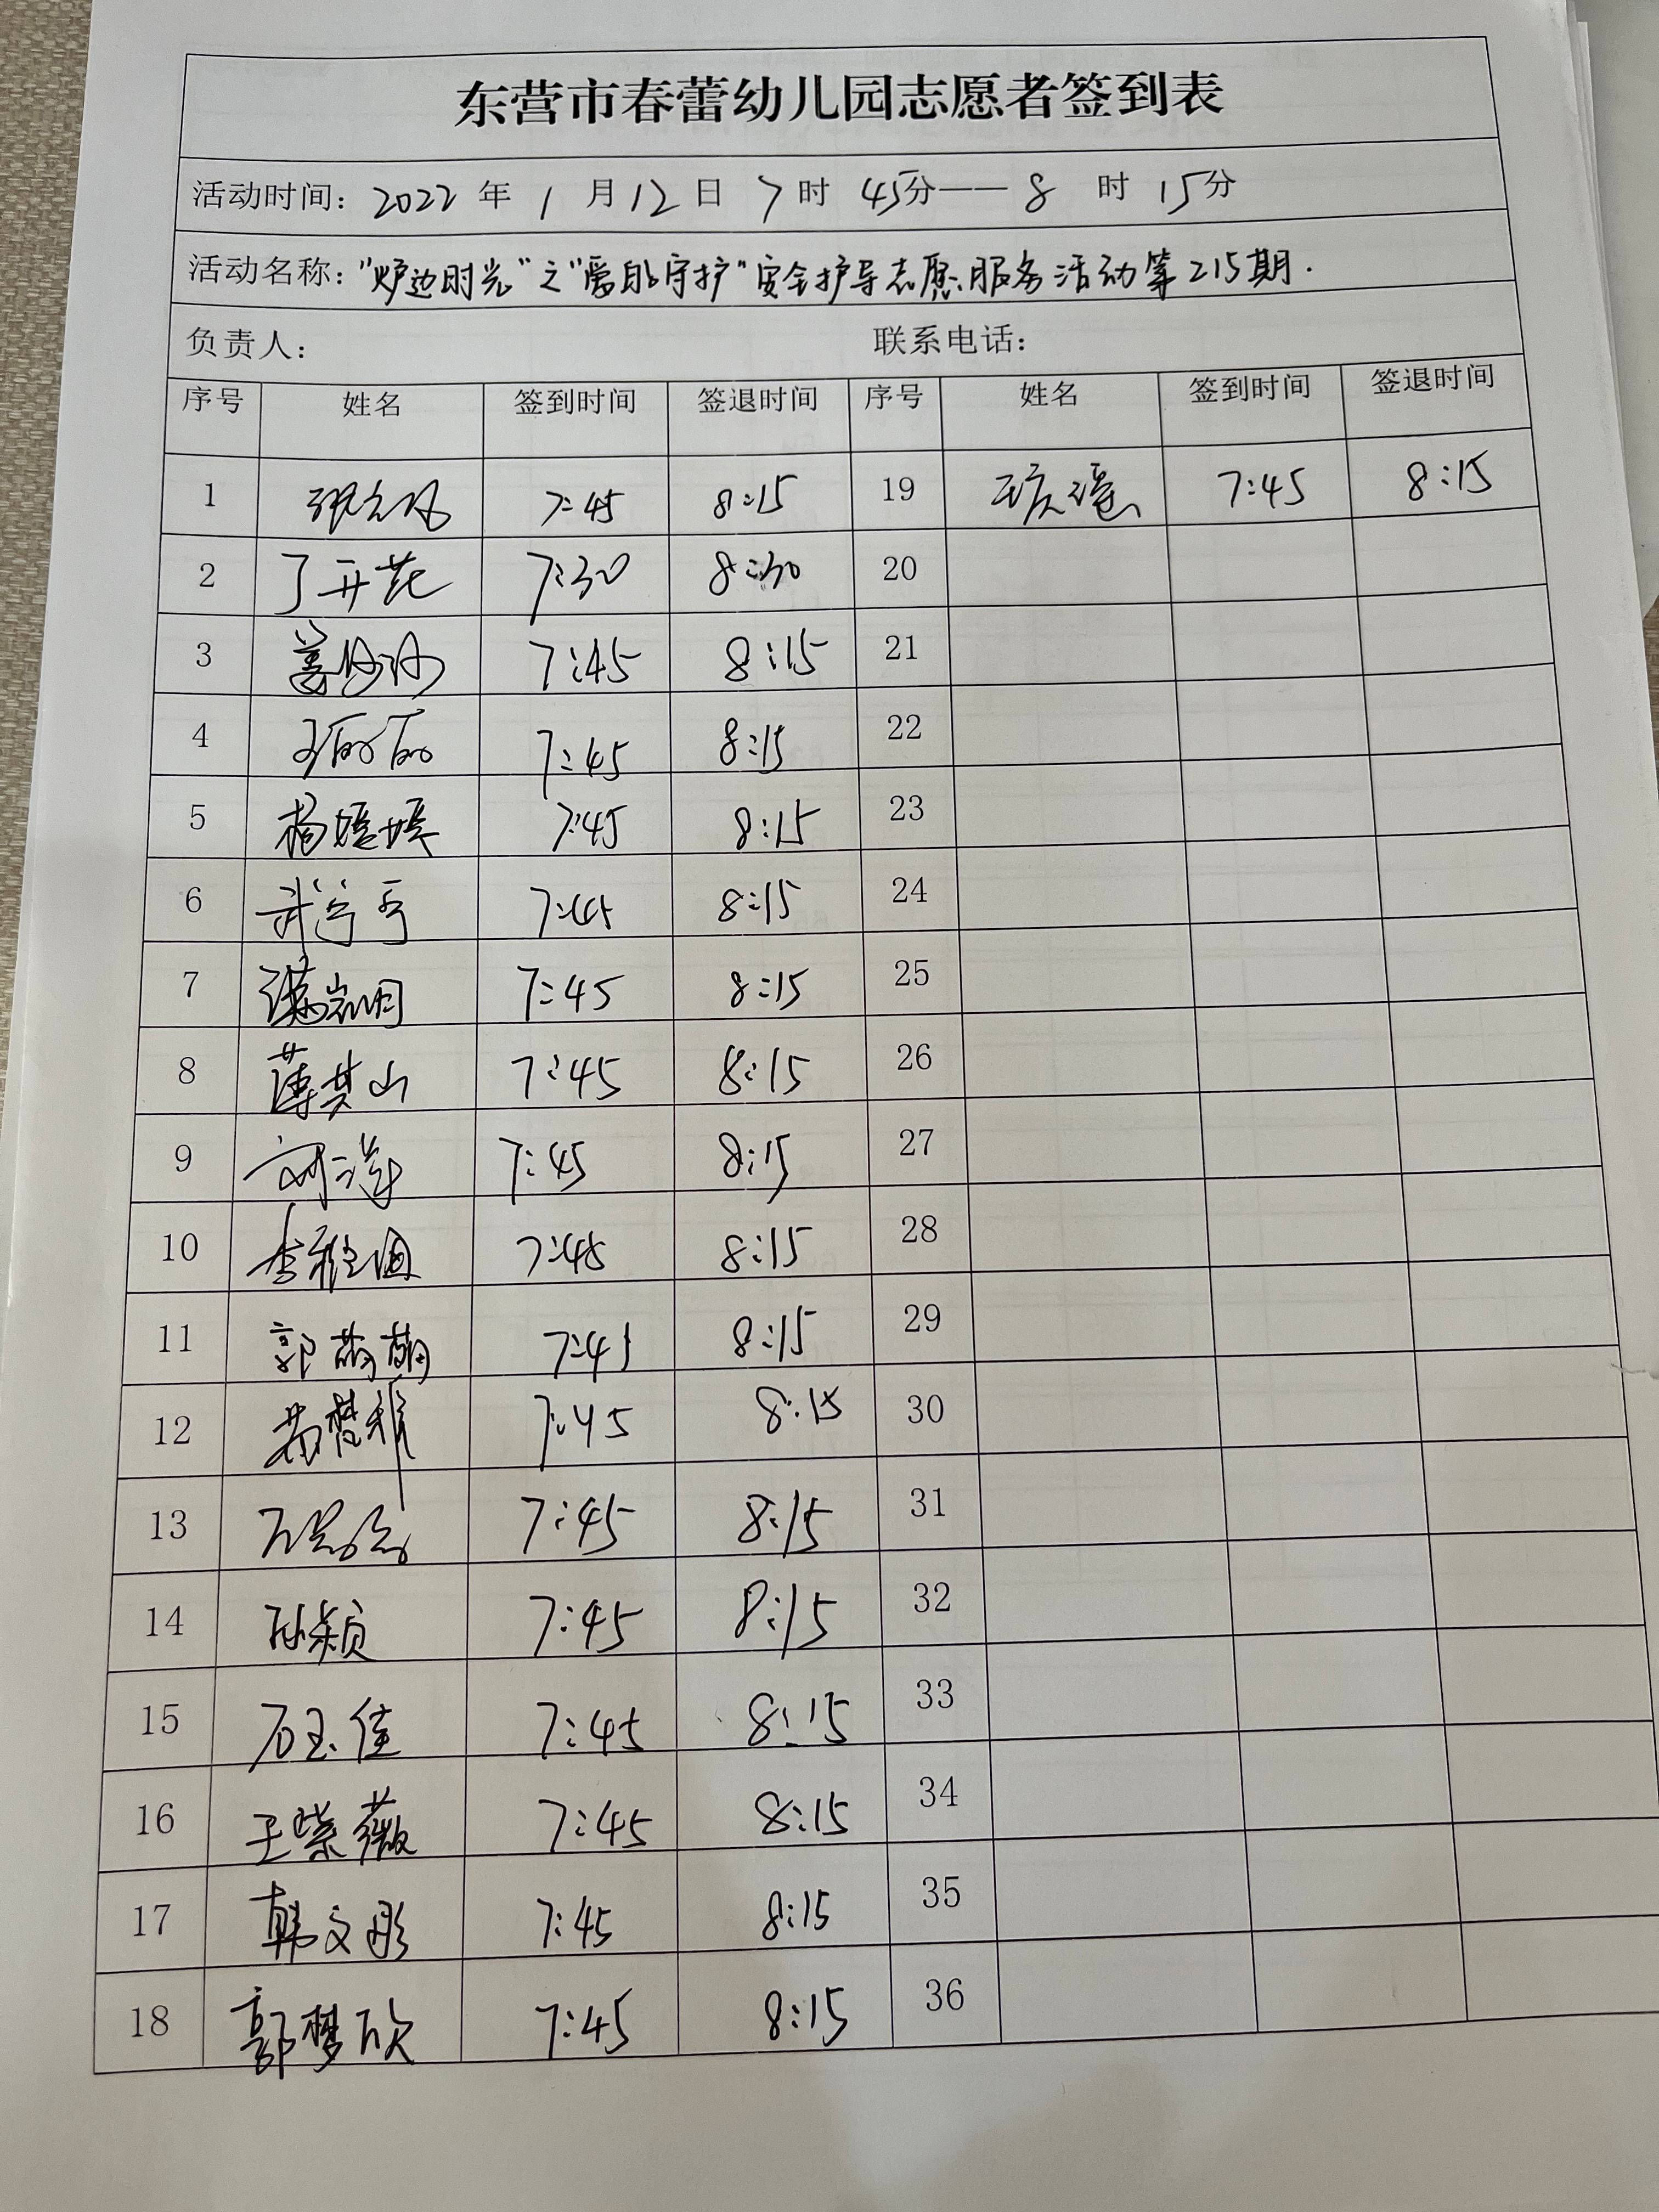 东营市春蕾幼儿园志愿者签到表
活动时间：2022年1月12日7时45分——8时15分
活动名称："炉边时光"之"爱的守护"安全护导志愿服务活动第215期.
负责人： 联系电话：
序号 姓名 签到时间 签退时间 序号 姓名 签到时间 签退时间
1 7:45 8:15 19 7:45 8:15
2 丁开花 7:30 8:30 20
3 姜 7:45 8:15 21
4 王丽丽 7:45 8:15 22
5 杨媛媛 7:45 8:15 23
6 武亭亭 7:45 8:15 24
7 7:45 8:15 25
8 薄其山 7:45 8:15 26
9 刘洋 7:45 8:15 27
10 李雅 7:45 8:15 28
11 郭萌萌 7:45 8:15 29
12 楚雅 7:45 8:15 30
13 7:45 8:15 31
14 孙颖 7:45 8:15 32
15 石玉佳 7:45 8:15 33
16 王紫薇 7:45 8:15 34
17 韩文彤 7:45 8:15 35
18 郭梦欣 7:45 8:15 36